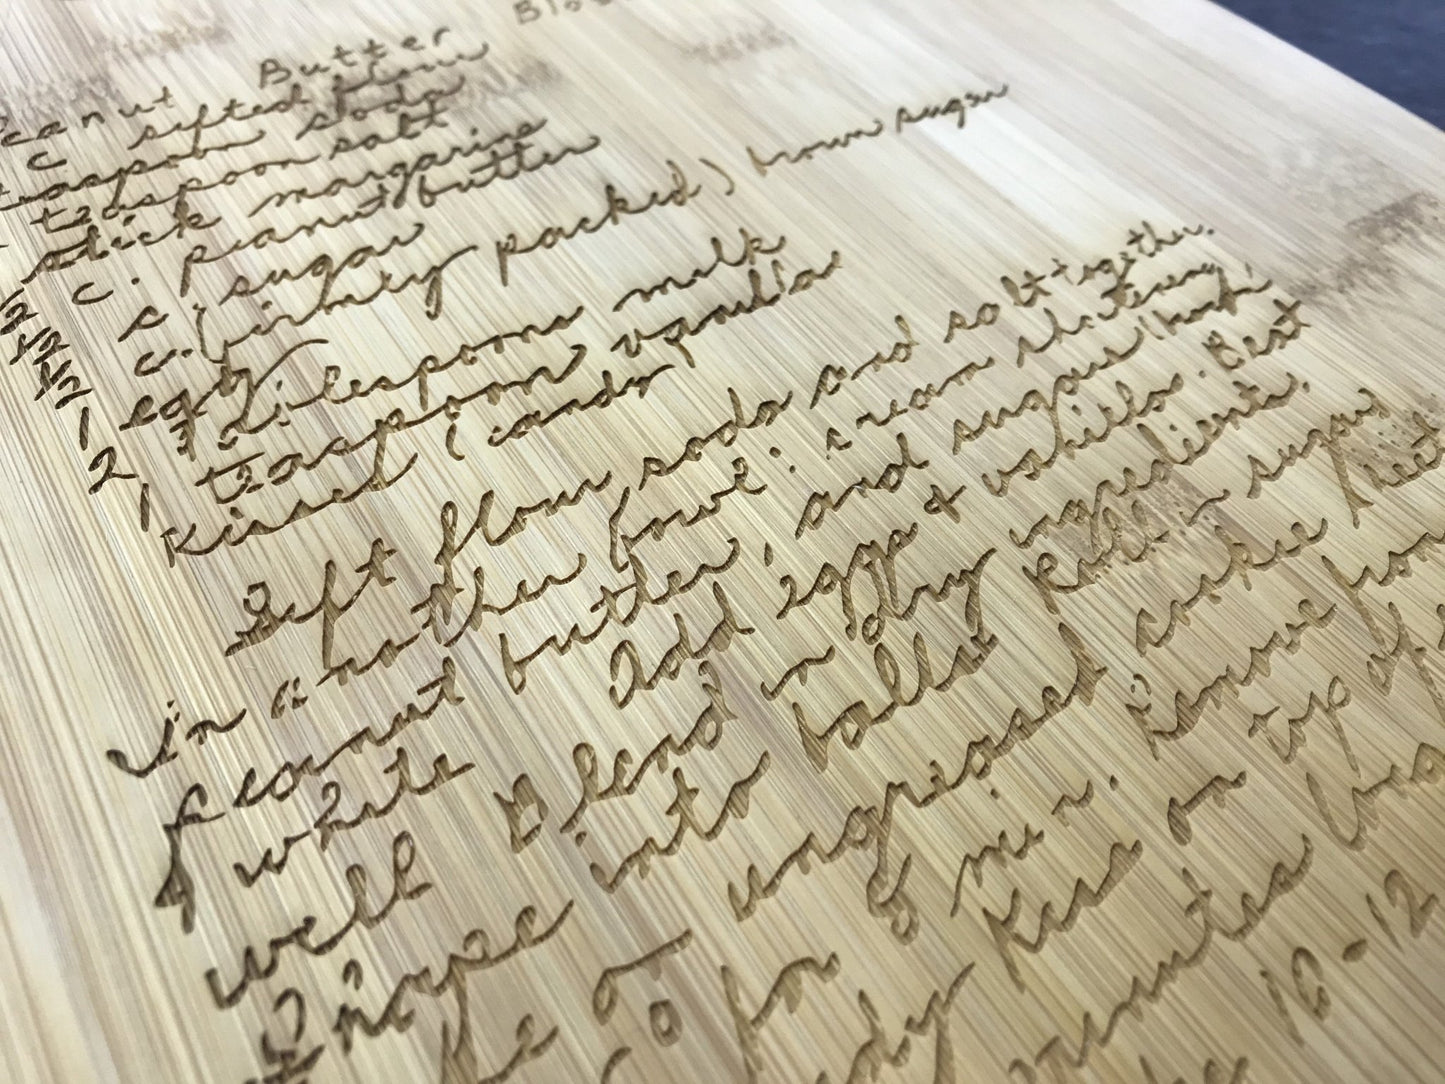 Peanut Butter
c sifted flour
teaspoon soda
teaspoon salt
stick margarine
1/2 c. peanut butter
1/2 c. sugar
1/2 c. (firmly packed) brown sugar
1 egg
2 tablespoons milk
1 teaspoon vanilla
Kisses (candy
Sift flour soda and salt together.
in another bowl: cream shortening
peanut butter, and sugars (brown
& white Add eggs & vanilla. Best
well Blend in dry ingredients.
Shape into balls Roll in sugar
ungreased cookie sheet
for 8 min. Remove from
candy Kiss on top of
minutes
10-12